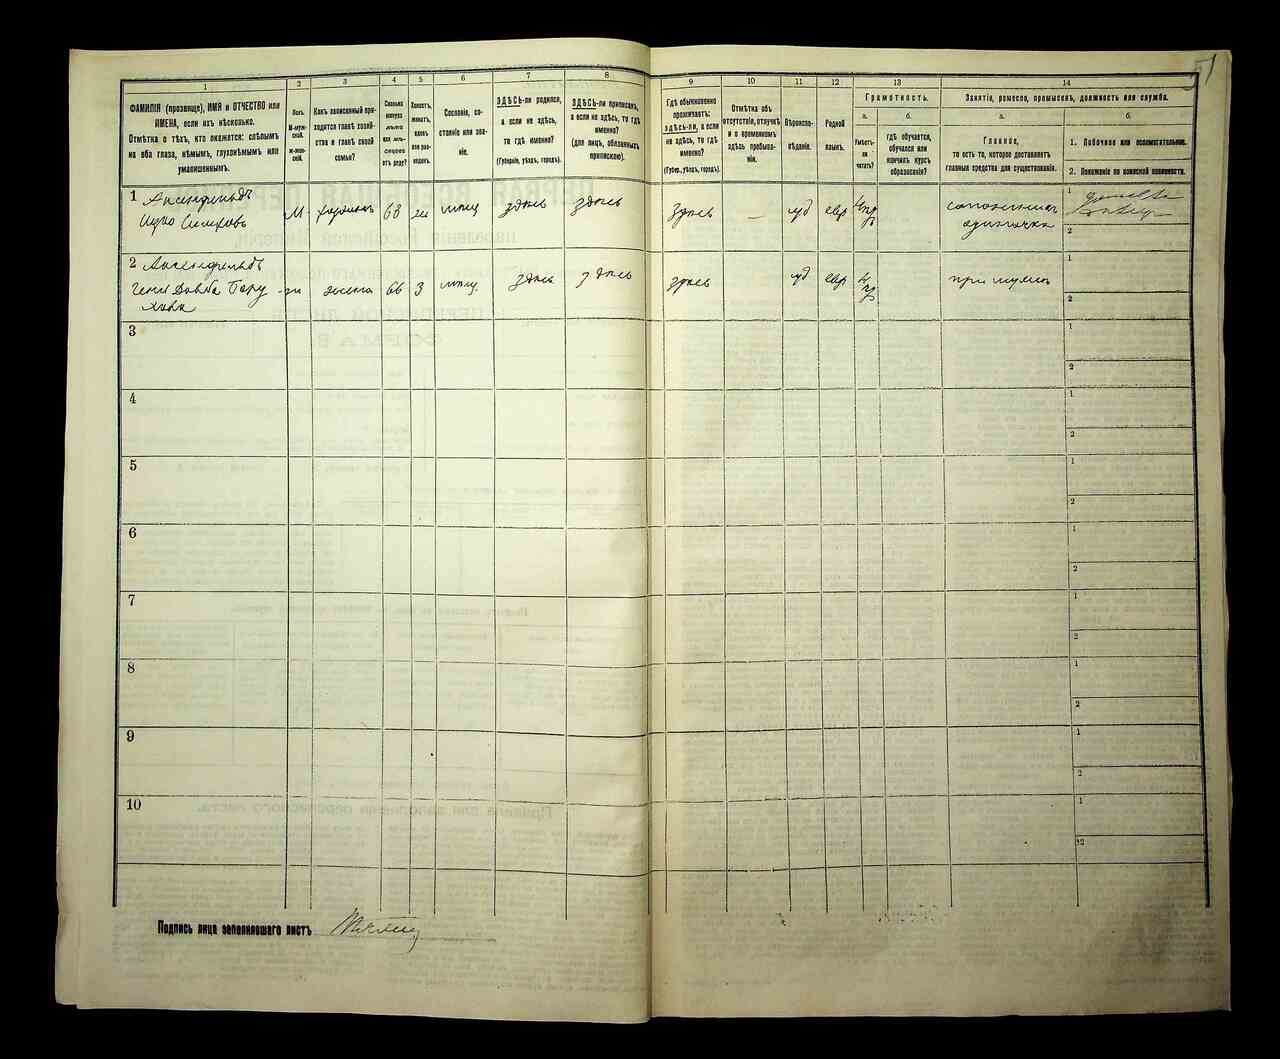 1
2
3
4
5
6
7
8
9
10
11
12
13
14
ФАМИЛІЯ (прозвище), ИМЯ и ОТЧЕСТВО или
ИМЕНА, если ихъ нѣсколько.
Отмѣтка о тѣхъ, кто окажется: слѣпымъ
на оба глаза, нѣмымъ, глухонѣмымъ или
умалишеннымъ.
Полъ.
М-муж-
ской.
ж-жен-
скій.
Какъ записанный при-
ходится главѣ хозяй-
ства и главѣ своей
семьи?
Сколько
минуло
лѣтъ
или мѣ-
сяцевъ
отъ роду?
Холостъ,
женатъ,
вдовъ
или раз-
веденъ.
Сословіе, со-
стояніе или зва-
ніе.
ЗДѢСЬ-ли родился,
а если не здѣсь,
то гдѣ именно?
(Губернія, уѣздъ, городъ).
ЗДѢСЬ-ли приписанъ,
а если не здѣсь, то гдѣ
именно?
(для лицъ, обязанныхъ
припискою).
Гдѣ обыкновенно
проживаетъ:
здѣсь-ли, а если
не здѣсь, то гдѣ
именно?
(Губер., уѣздъ, городъ).
Отмѣтка объ
отсутствіи, отлучкѣ
и о временномъ
здѣсь пребыва-
ніи.
Вѣроиспо-
вѣданіе.
Родной
языкъ.
Грамотность.
а.
б.
Умѣетъ-
ли
читать?
гдѣ обучается,
обучался или
кончилъ курсъ
образованія?
Занятіе, ремесло, промыселъ, должность или служба.
а.
б.
Главное,
то есть то, которое доставляетъ
главныя средства для существованія.
1. Побочное или вспомогательное.
2. Положеніе по воинской повинности.
1 Аксенфельдъ
М
хозяинъ
68
мѣщ
здѣсь
здѣсь
здѣсь
—
іуд
евр
одиночка
1
2
2 Аксенфельдъ
жена
66
з
мѣщ.
здѣсь
здѣсь
здѣсь
іуд
евр
при мужѣ
1
2
3
1
2
4
1
2
5
1
2
6
1
2
7
1
2
8
1
2
9
1
2
10
1
2
Подпись лица заполнявшаго листъ